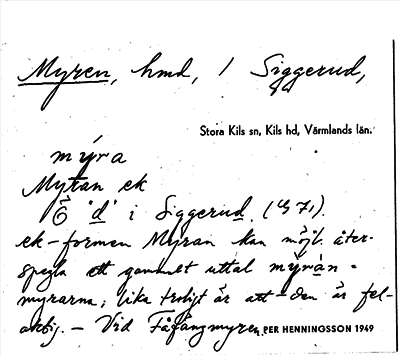 Myren, hmd, 1 Siggerud,
Stora Kils sn, Kils hd, Värmlands län.
mýra
Myran ek
Ö "d" i Siggerud. (
ek-formen Myran kan möjl. åter-
spegla ett gammalt uttal
myrarna; lika troligt är att den är fel-
aktig. – Vid Fåfängmyren.
PER HENNINGSSON 1949